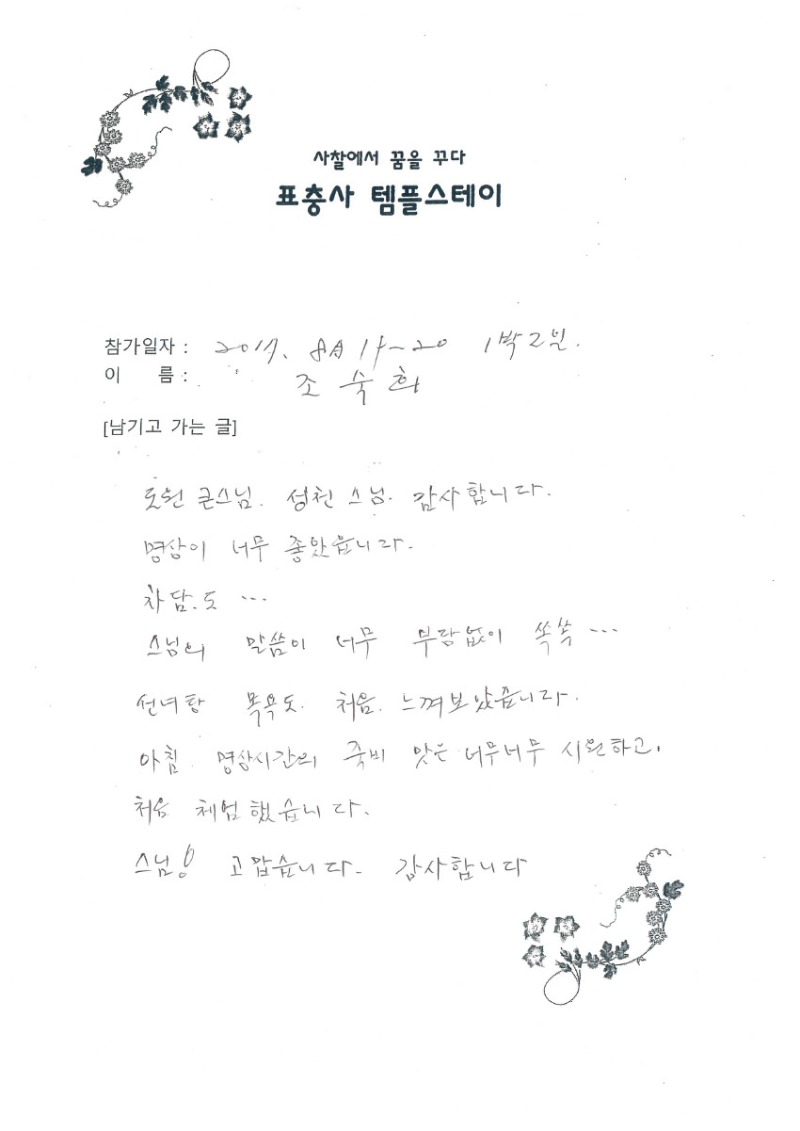 사찰에서 꿈을 꾸다
표충사 템플스테이
참가일자 : 8月 1박 2일.
이 름 : 조 숙 희
[남기고 가는 글]
도원 큰스님. 성천 스님. 감사합니다.
명상이 너무 좋았읍니다.
차담.도 ...
스님의 말씀이 너무 부담없이 쏙쏙 ...
선녀탕 목욕도. 처음. 느껴보았습니다.
아침 명상시간의 죽비 맛은 너무너무 시원하고,
처음 체험했습니다.
스님! 고맙습니다. 감사합니다